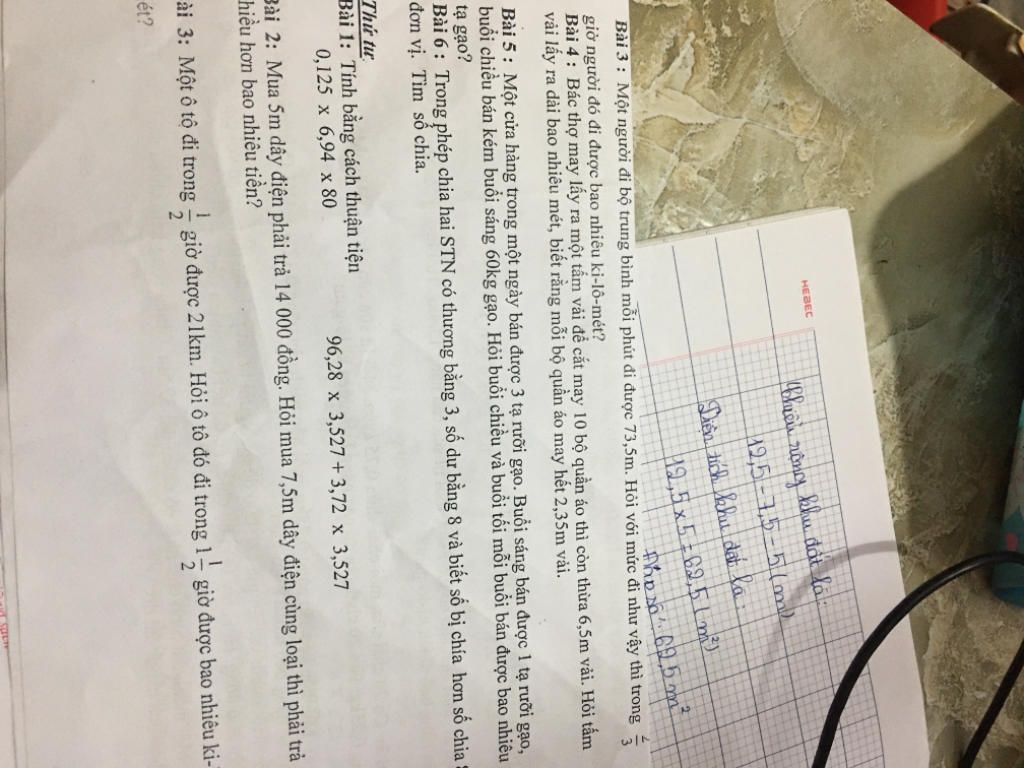 HEBEC
Chiều rộng khu đất là:
12,5 - 7,5 = 5 (m)
Diện tích khu đất là:
12,5 x 5 = 62,5 (m²)
Đáp số: 62,5 m²
Bài 3 : Một người đi bộ trung bình mỗi phút đi được 73,5m. Hỏi với mức đi như vậy thì trong /3
giờ người đó đi được bao nhiêu ki-lô-mét?
Bài 4 : Bác thợ may lấy ra một tấm vải để cắt may 10 bộ quần áo thì còn thừa 6,5m vải. Hỏi tấm
vải lấy ra dài bao nhiêu mét, biết rằng mỗi bộ quần áo may hết 2,35m vải.
Bài 5 : Một cửa hàng trong một ngày bán được 3 tạ rưỡi gạo. Buổi sáng bán được 1 tạ rưỡi gạo,
buổi chiều bán kém buổi sáng 60kg gạo. Hỏi buổi chiều và buổi tối mỗi buổi bán được bao nhiêu
tạ gạo?
Bài 6 : Trong phép chia hai STN có thương bằng 3, số dư bằng 8 và biết số bị chía hơn số chia
đơn vị. Tìm số chia.
Thứ tư
Bài 1: Tính bằng cách thuận tiện
0,125 x 6,94 x 80 96,28 x 3,527 + 3,72 x 3,527
Bài 2: Mua 5m dây điện phải trả 14 000 đồng. Hỏi mua 7,5m dây điện cùng loại thì phải trả
hiều hơn bao nhiêu tiền?
ài 3: Một ô tô đi trong 1/2 giờ được 21km. Hỏi ô tô đó đi trong 1 1/2 giờ được bao nhiêu ki-
ét?